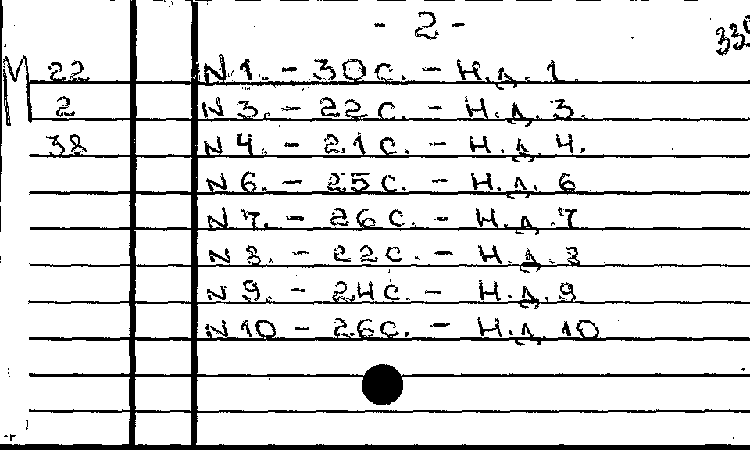 - 2 -
22 N 1. - 30 с. - Н.д. 1
2 N 3. - 22 с. - Н.д. 3.
38 N 4. - 21 с. - Н.д. 4.
N 6. - 25 с. - Н.д. 6
N 7. - 26 с. - Н.д. 7
N 8. - 22 с. - Н.д. 8
N 9. - 24 с. - Н.д. 9
N 10 - 26 с. - Н.д. 10